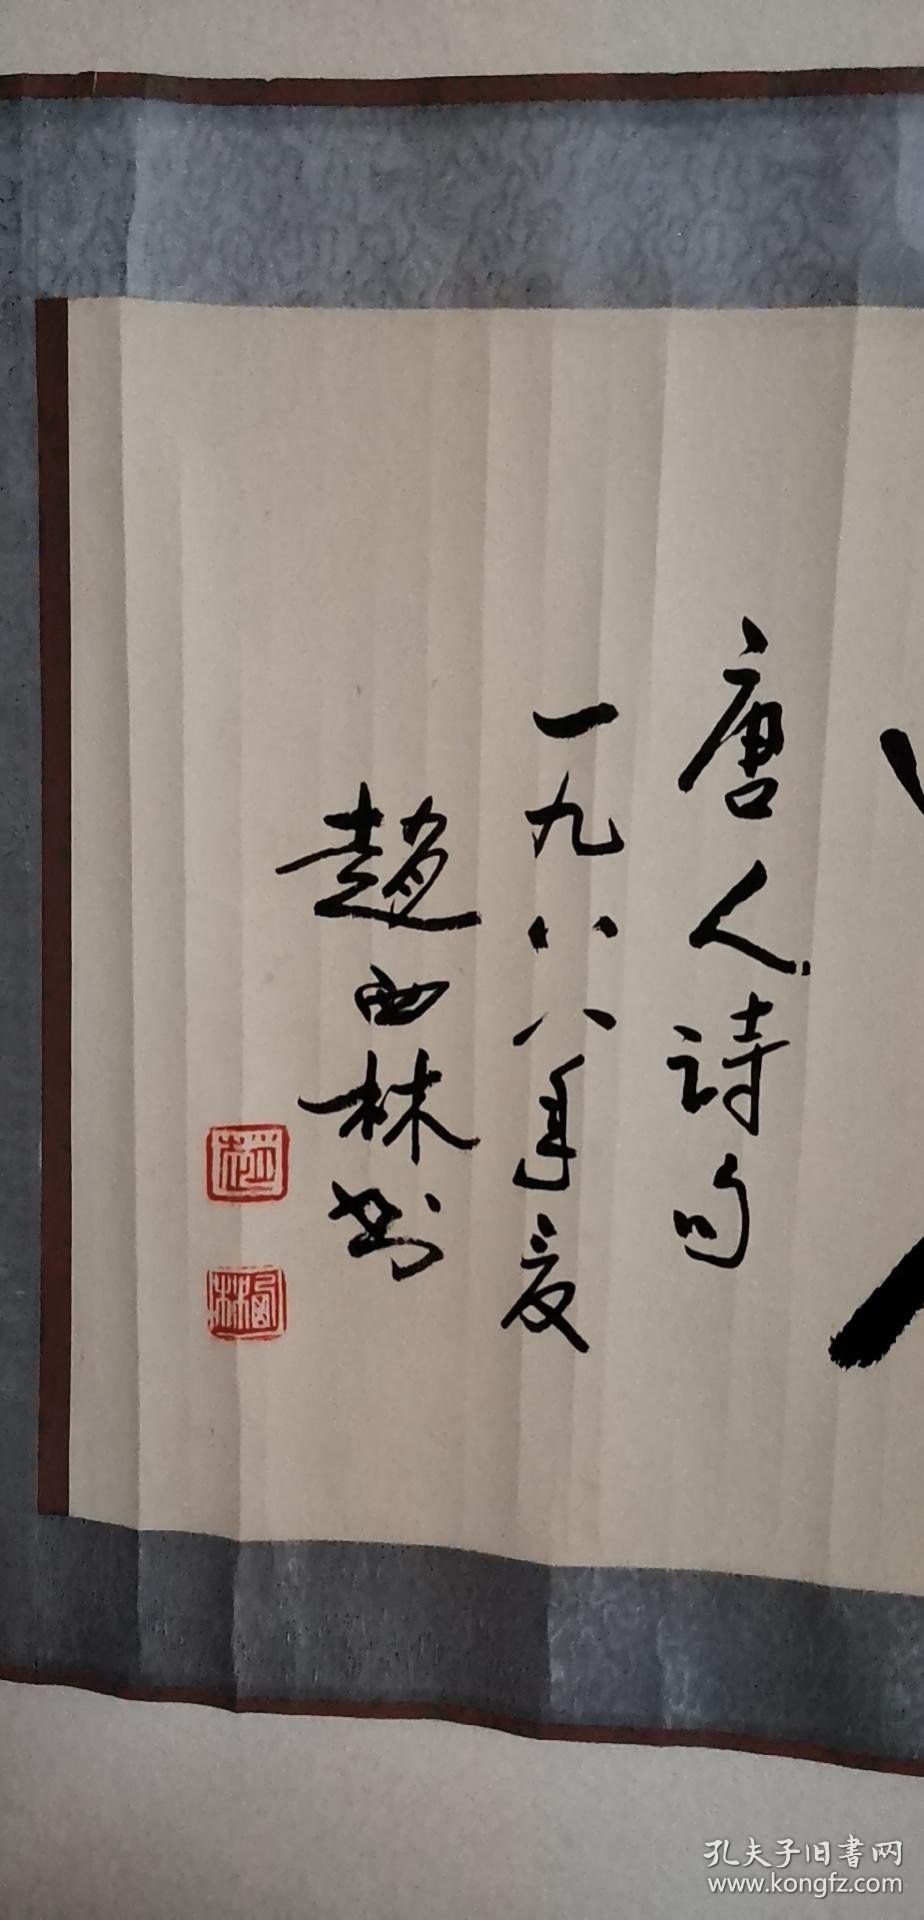 唐人诗句
一九八八年夏
趙西林书
孔夫子旧書网
www.kongfz.com